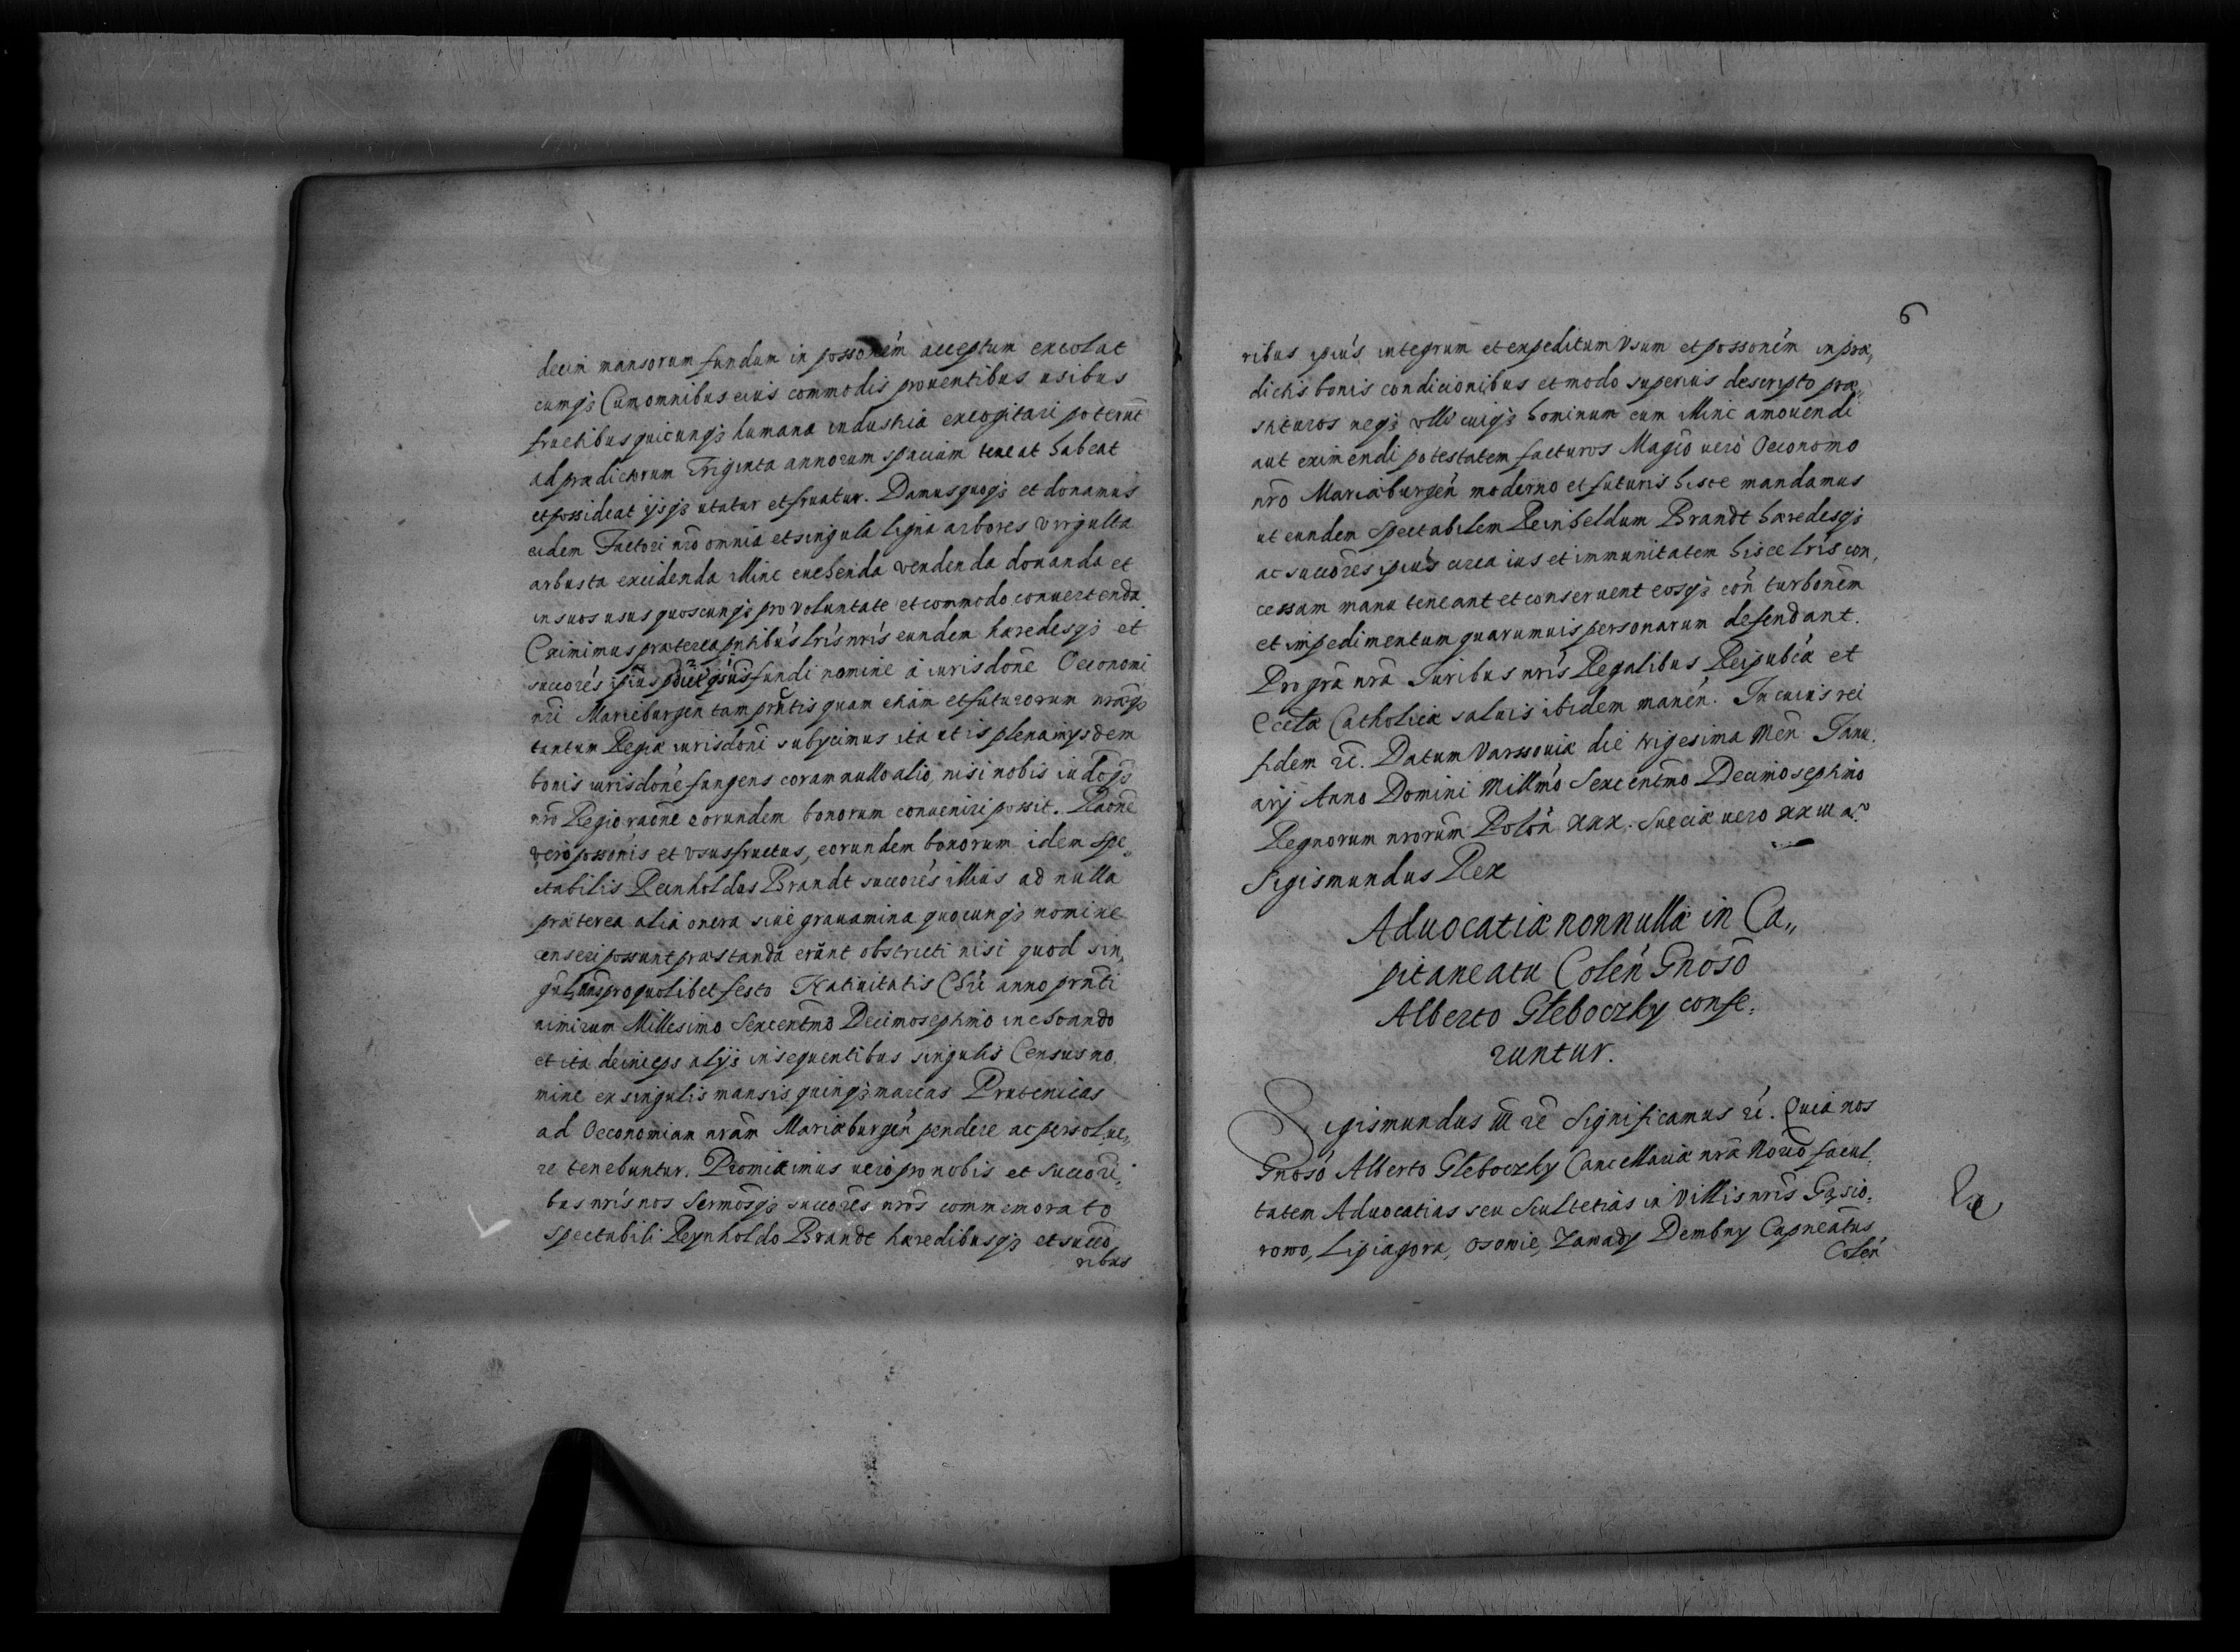 decim mansorum fundum in possonem acceptum excolat
cumq3 Cum omnibus eius commodis prouentibus usibus
fructibus quicunq3 humana industria excogitari poterūt
ad prædictorum Triginta annorum spacium teneat habeat
et possideat ijsq3 utatur et fruatur. Damus quoq3 et donamus
eidem Factori nrō omnia et singula ligna arbores virgulta
arbusta excidenda illinc euehenda vendenda donanda et
in suos usus quoscunq3 pro voluntate et commodo conuertenda
Eximimus præterea pntibus lris nris eundem hæredesq3 et
succores ipius fundi nomine a iurisdone Oeconomi
nri Marieburgen tam prntis quam etiam et futurorum nræq3
tantum Regiæ iurisdoni subijcimus ita ut is plena in ysdem
bonis iurisdone fungens coram nullo alio, nisi nobis
nrō Regio raone eorundem bonorum conueniri possit. Raone
vero possonis et vsusfructus, eorundem bonorum idem Spe„
ctabilis Reinholdus Brandt succores illius ad nulla
præterea alia onera siue grauamina quocunq3 nomine
censeri possunt præstanda erūnt obstricti nisi quod sin,
pro quolibet festo Natiuitatis Chri anno prnti
nimirum Millesimo Sexcentmo Decimoseptimo inchoando
et ita deinceps alijs insequentibus singulis Census no,
mine ex singulis mansis quinq3 marcas Prutenicas
ad Oeconomian nram Mariæburgen pendere ac persolue„
re tenebuntur. Promittimus vero pro nobis et Succori,
bus nris nos Sermosq3 succores nros commemorato
Spectabili Reynholdo Brandt hæredibusq3 et succo
ribus
6
ribus ipius integrum et expeditum vsum et possonem in præ,
dictis bonis condicionibus et modo superius descripto præ„
stituros neq3 vlli cuiq3 hominum eum illinc amouendi
aut eximendi potestatem facturos Magco vero Oeconomo
nrō Mariæburgen moderno et futuris hisce mandamus
ut eundem Spectabilem Reinheldum Brandt hæredesq3
ac succores ipius circa ius et immunitatem hisce lris con,
cessam manu teneant et conseruent eosq3 con turbonem
et impedimentum quarumuis personarum defendant.
Pro gra nra Juribus nris Regalibus Reipubcæ et
Eccla Catholicæ saluis ibidem manen. In cuius rei
fidem rc. Datum Varssouiæ die trigesima Men Janu,
arij Anno Domini Millmo Sexcentmo Decimoseptimo
Regnorum nrorum Polon XXX. Sueciæ vero XXIII aº
Sigismundus Rex
Aduocatiæ nonnullæ in Ca„
pitaneatu Colen Gnoso
Alberto Gleboczky confe,
runtur.
Sigismundus III rc Significamus rc. Quia nos
Gnoso Alberto Gleboczky Cancellariæ nræ Norio facul,
tatem Aduocatias seu Scultetias in Villis nris Gąsio,
rowo, Lipiagora, Osowie, Zawady Dembny Capneatus
Colen